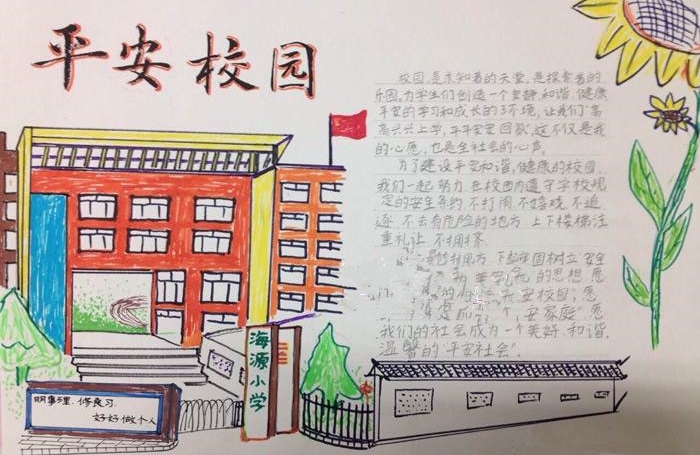 平安校园
校园,是求知者的天堂,是探索者的
乐园,为学生们创造一个安静、和谐、健康
平安的学习和成长的环境,让我们"高
高兴兴上学,平平安安回家"这不仅是我
的心愿,也是全社会的心声。
为了建设平安和谐,健康的校园
我们一起努力,在校园内遵守学校规
定的安全条约不打闹不嬉戏,不追
逐,不去有危险的地方,上下楼梯注
重礼让,不拥挤
树立安全
的思想,愿
安校园,愿
安家庭"愿
我们的社会成为一个美好、和谐,
温馨的"平安社会"。
海源小学
明事理.修良习.
好好做个人